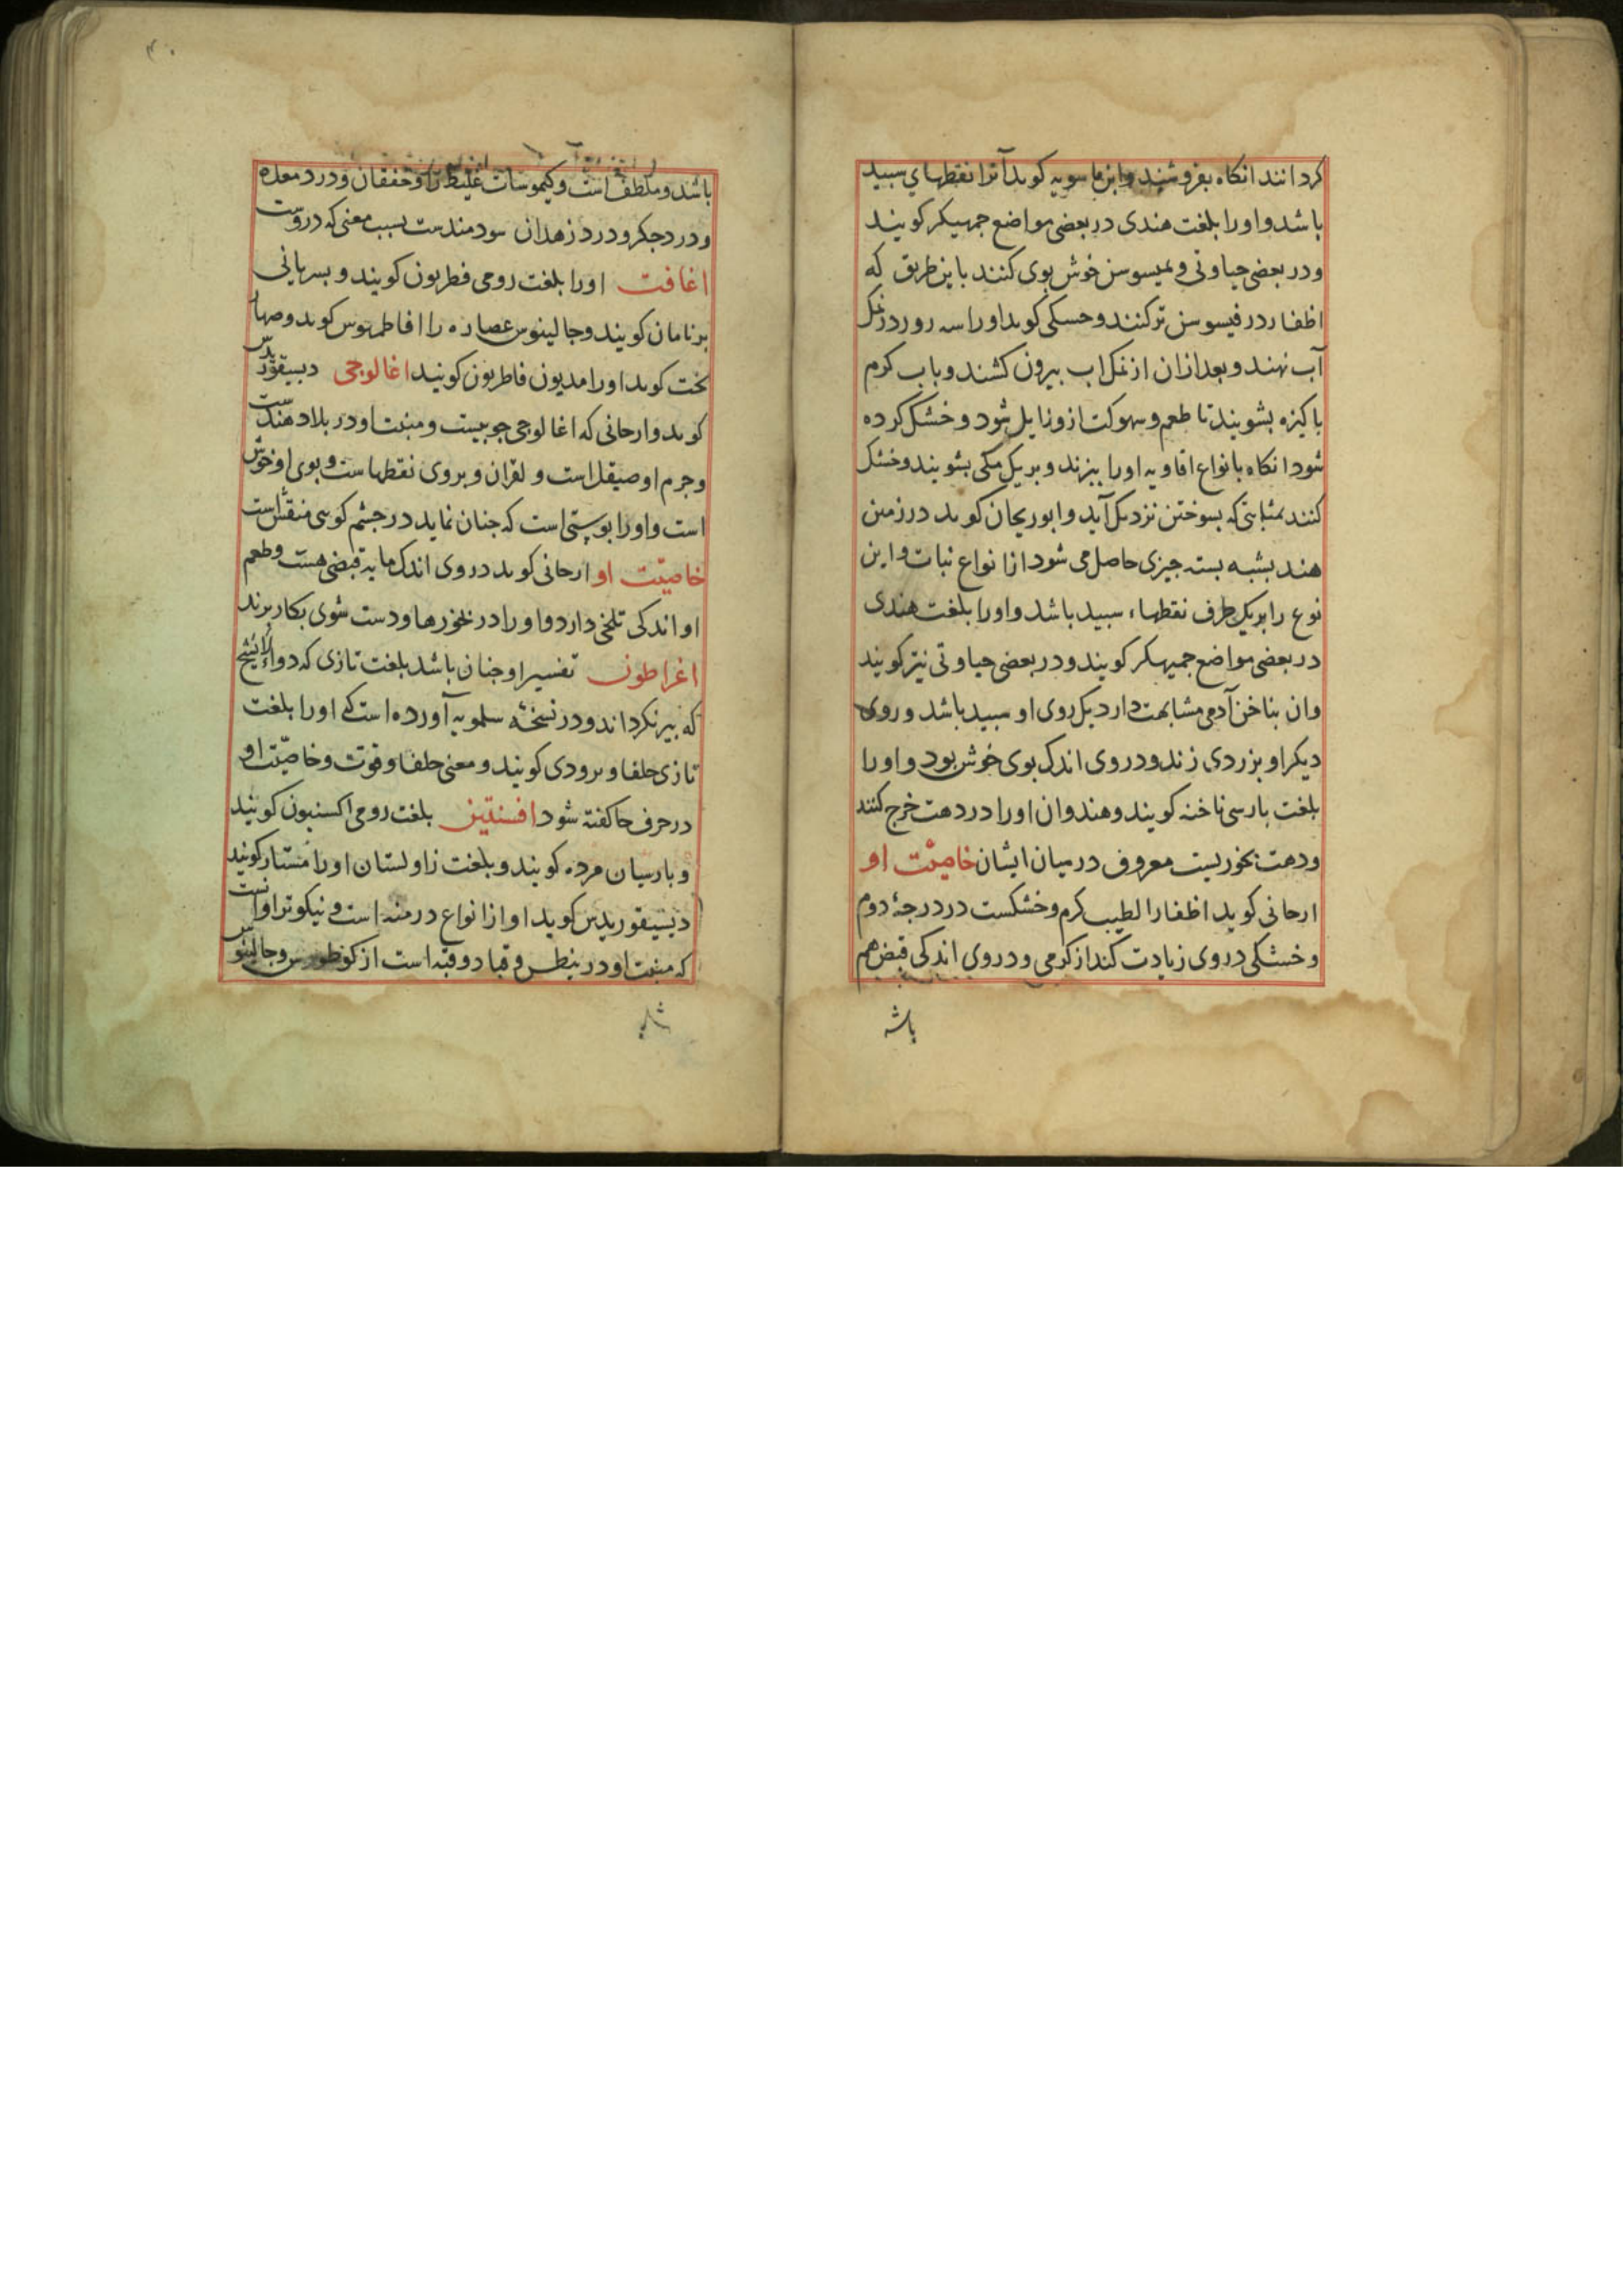 کردانند انکاه بفروشند وابن ماسویه کوید آنرا نقطهاي سبید
باشد و اورا بلغت هندی در بعضی مواضع جمهیکر کویند
ودر بعضی حیاوتی و بمیسوسن خوش بوی کنند باین طریق که
اظفار در فیسوسن تر کنند وحسکی کوید اورا سه روز در نمک
آب نهند و بعد ازان از نمک اب بیرون کشند و باب کرم
باکیزه بشویند تا طعم و سهوکت ازو زایل شود و خشک کرده
شود انکاه بانواع افاویه اورا ببزند و بریک مکی بشویند وخشک
کنند بمثابتی که بسوختن نزدیک آید وابوریحان کوید در زمین
هند بشبه بسته جیزی حاصل می شود از انواع نبات واین
نوع را بریک طرف نقطهاء سبید باشد واورا بلغت هندی
در بعضی مواضع جمیهکر کویند ودر بعضی حیاوتی نیز کویند
وان بناخن آدمی مشابهت دارد یک روی او سبید باشد وروی
دیکر او بزردی زند ودروی اندک بوی خوش بود و اورا
بلغت بارسی ناخنه کویند وهندوان اورا در دهت خرج کنند
ودهت بخوریست معروف در میان ایشان خاصیّت او
ارحانی کوید اظفار الطیب کرم وخشکست در درجهٔ دوم
وخشکی دروی زیادت کند از کرمی ودروی اندکی قبض هم
باشد
باشد وملطف است وکیموسات غلیظ را وخفقان ودرد معده
ودرد جکر ودرد زهدان سودمندست بسبب معنی که دروست
اغافت اورا بلغت رومی فطربون کویند و بسریانی
برنامان کویند وجالینوس عصاره را افاطمهوس کوید وصهار
بخت کوید اورا مدیون فاطربون کویند اغالوجی دیسقوریدس
کوید وارحانی که اغالوجی جوبیست ومنبت او در بلاد هندست
وجرم او صیقل است و لقران وبروی نقطهاست وبوی او خوش
است واورا بوستی است که جنان نماید در جشم کویی منقش است
خاصیّت او ارحانی کوید دروی اندک مایه قبضی هست وطعم
او اندکی تلخی دارد واورا در بخورها ودست شوی بکار برند
اغراطون تفسیر او جنان باشد بلغت تازی که دواء لا یشیخ
که بیر نکرداند ودر نسخهٔ سلمویه آورده است که اورا بلغت
تازی حلفا و بردی کویند ومعنی حلفا وقوت وخاصیّت او
در حرف حا کفته شود افسنتین بلغت رومی اکسنیون کویند
وبارسیان مرده کویند وبلغت زاولستان اورا مستار کویند
دیسیقوریدس کوید او از انواع درمنه است ونیکوتر اوانست
که منبت او در بنطس وقبادوقیه است از کوه طورس وجالینوس